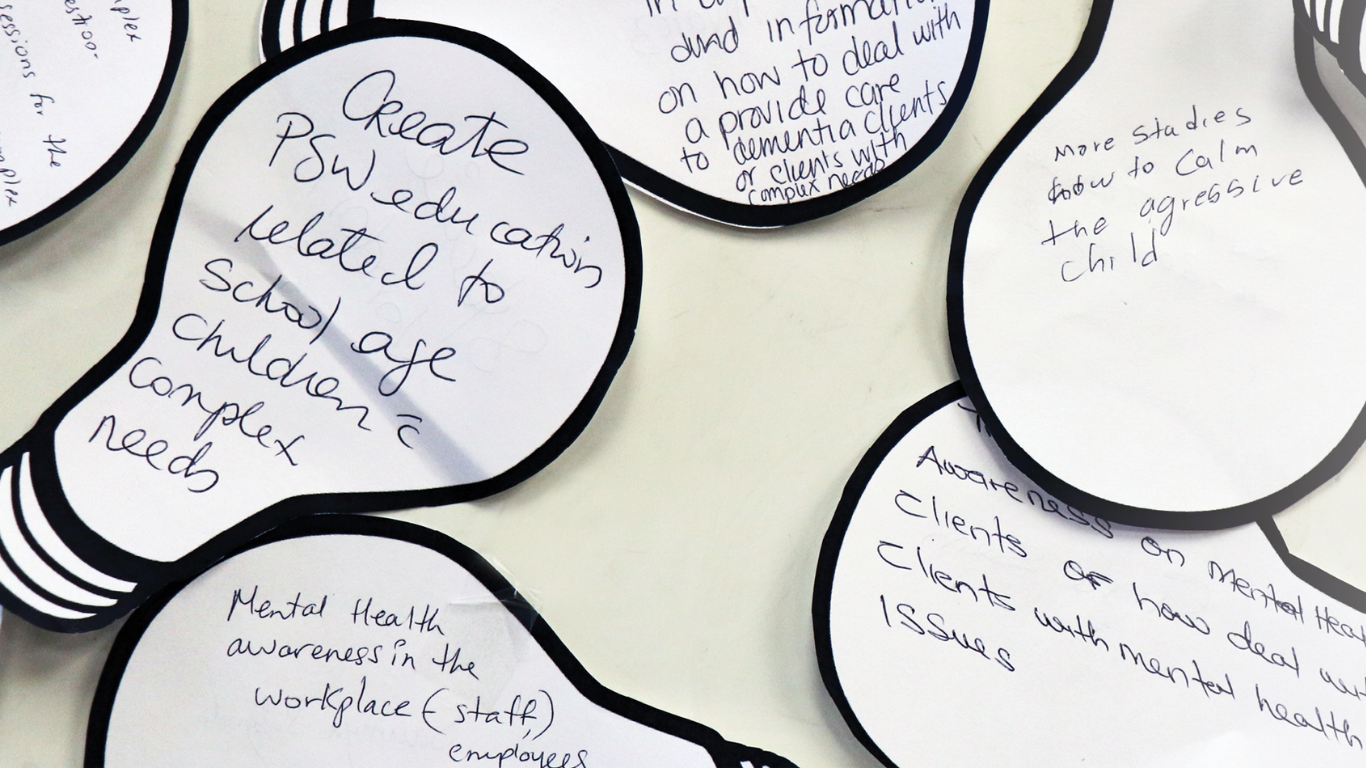 Create
PSW education
related to
school age
children c̄
complex
needs
and information
on how to deal with
a provide care
to dementia clients
or clients with
complex needs
More Studies
how to Calm
the agressive
child
Mental Health
awareness in the
workplace (staff)
employees
Awareness on Mental Heal
Clients or how deal wit
Clients with mental health
Issues
sessions for the
mplex